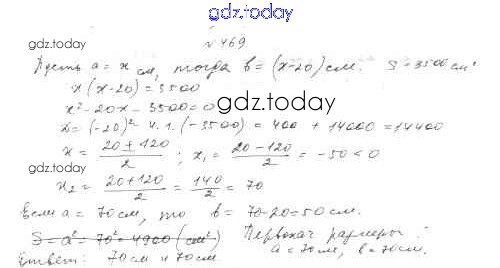 gdz.today
№469
gdz.today
Пусть a = x см, тогда b = (x-20) см. S = 3500 см²
x(x-20) = 3500
x²-20x-3500=0
gdz.today
D = (-20)² - 4·1·(-3500) = 400 + 14000 = 14400
x = (20 ± 120)/2 ; x₁ = (20-120)/2 = -50 < 0
gdz.today
x₂ = (20+120)/2 = 140/2 = 70
Если a = 70 см, то b = 70-20 = 50 см.
S = a² = 70² = 4900 (см²) Первонач размеры :
gdz.today
a = 70 см, b = 70 см.
Ответ: 70 см и 70 см